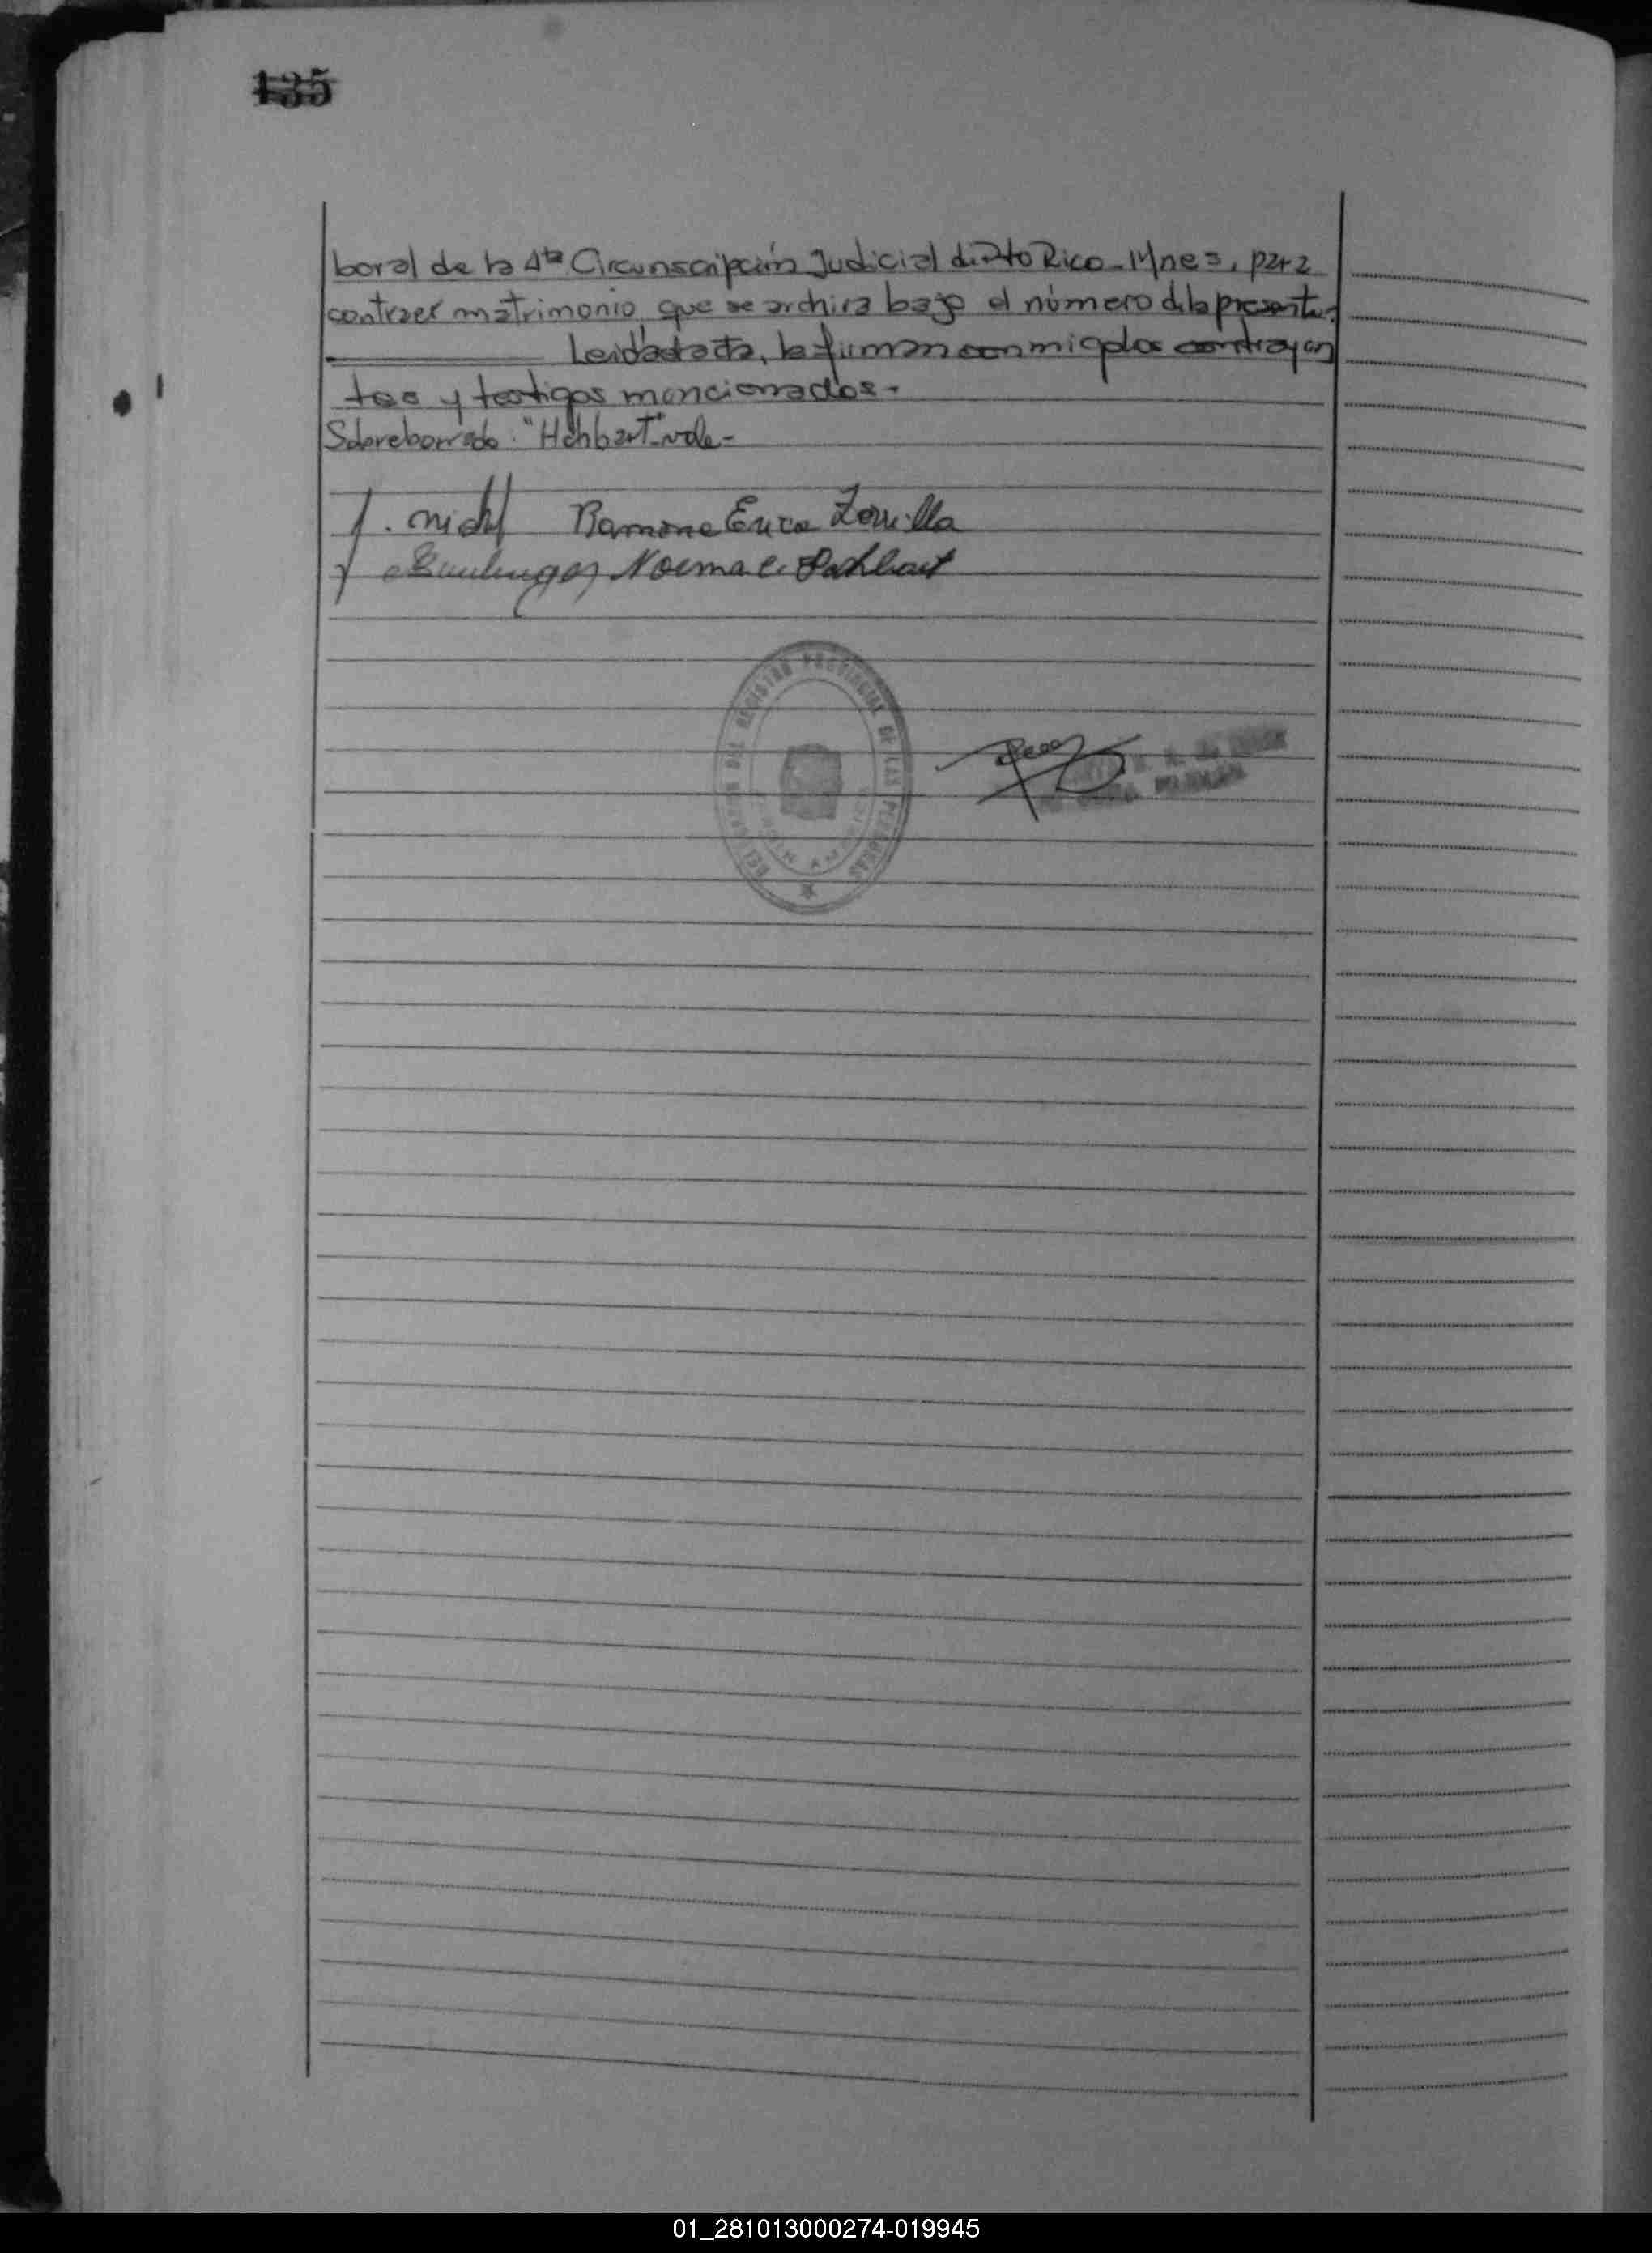 135
boral de la 4ta Circunscripción Judicial de Pto Rico-Mnes, para
contraer matrimonio que se archiva bajo el número de la presente.
Leída el acta, la firman conmigo los contrayen
tes y testigos mencionados.
Sobreborrado: "Hahbart" vale-
Ramona Erica Zorrilla
Norma
DEL REGISTRO PROVINCIAL DE LAS PERSONAS
01_281013000274-019945